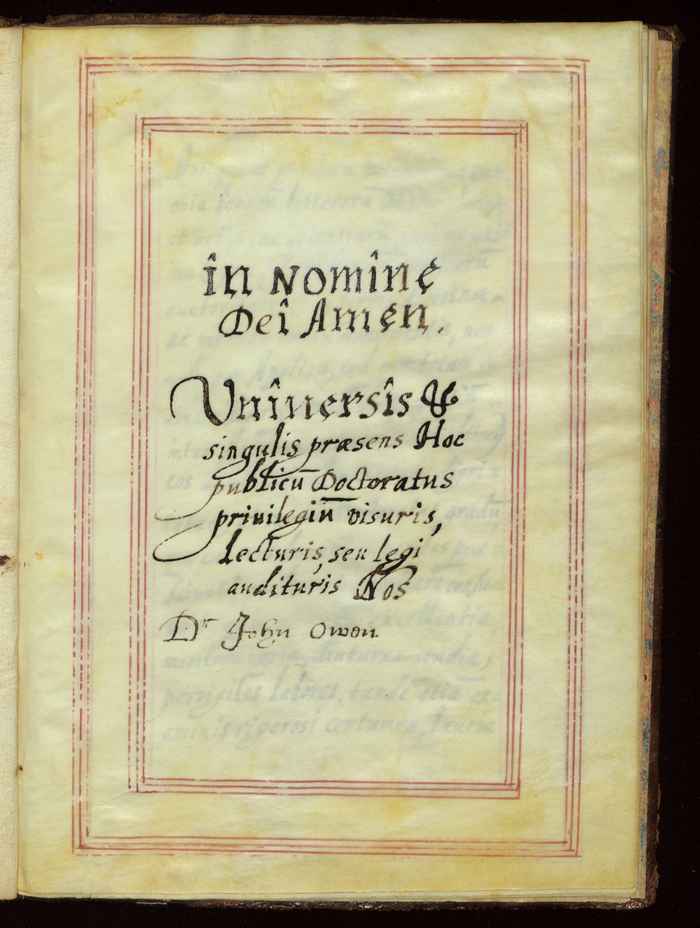 in nomine
Dei Amen.
Uniuersis &
singulis præsens Hoc
publicū Doctoratus
priuilegiū visuris,
Lecturis, seu legi
audituris Nos
Dr John Owen